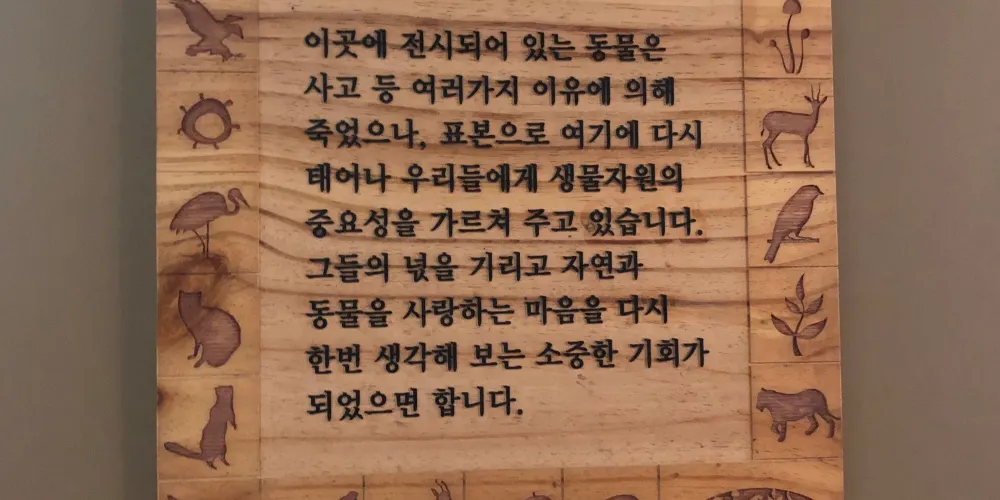 이곳에 전시되어 있는 동물은
사고 등 여러가지 이유에 의해
죽었으나, 표본으로 여기에 다시
태어나 우리들에게 생물자원의
중요성을 가르쳐 주고 있습니다.
그들의 넋을 기리고 자연과
동물을 사랑하는 마음을 다시
한번 생각해 보는 소중한 기회가
되었으면 합니다.